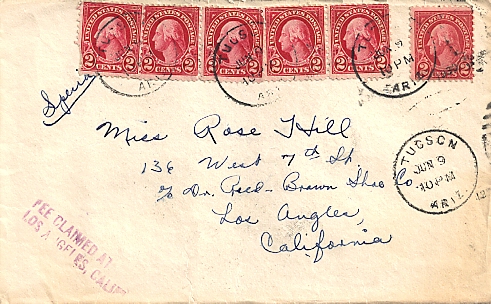 UNITED STATES POSTAGE UNITED STATES POSTAGE UNITED STATES POSTAGE UNITED STATES POSTAGE UNITED STATES POSTAGE UNITED STATES POSTAGE
2 CENTS 2 2 CENTS 2 2 CENTS 2 2 CENTS 2 2 CENTS 2 2 CENTS 2
Special
Miss Rose Hill
136 West 7th St.
c/o Dr. Reed-Brown Shoe Co.
Los Angles,
California
TUCSON
JUN 9
10 PM
ARIZ.
FEE CLAIMED AT
LOS ANGELES, CALIF.